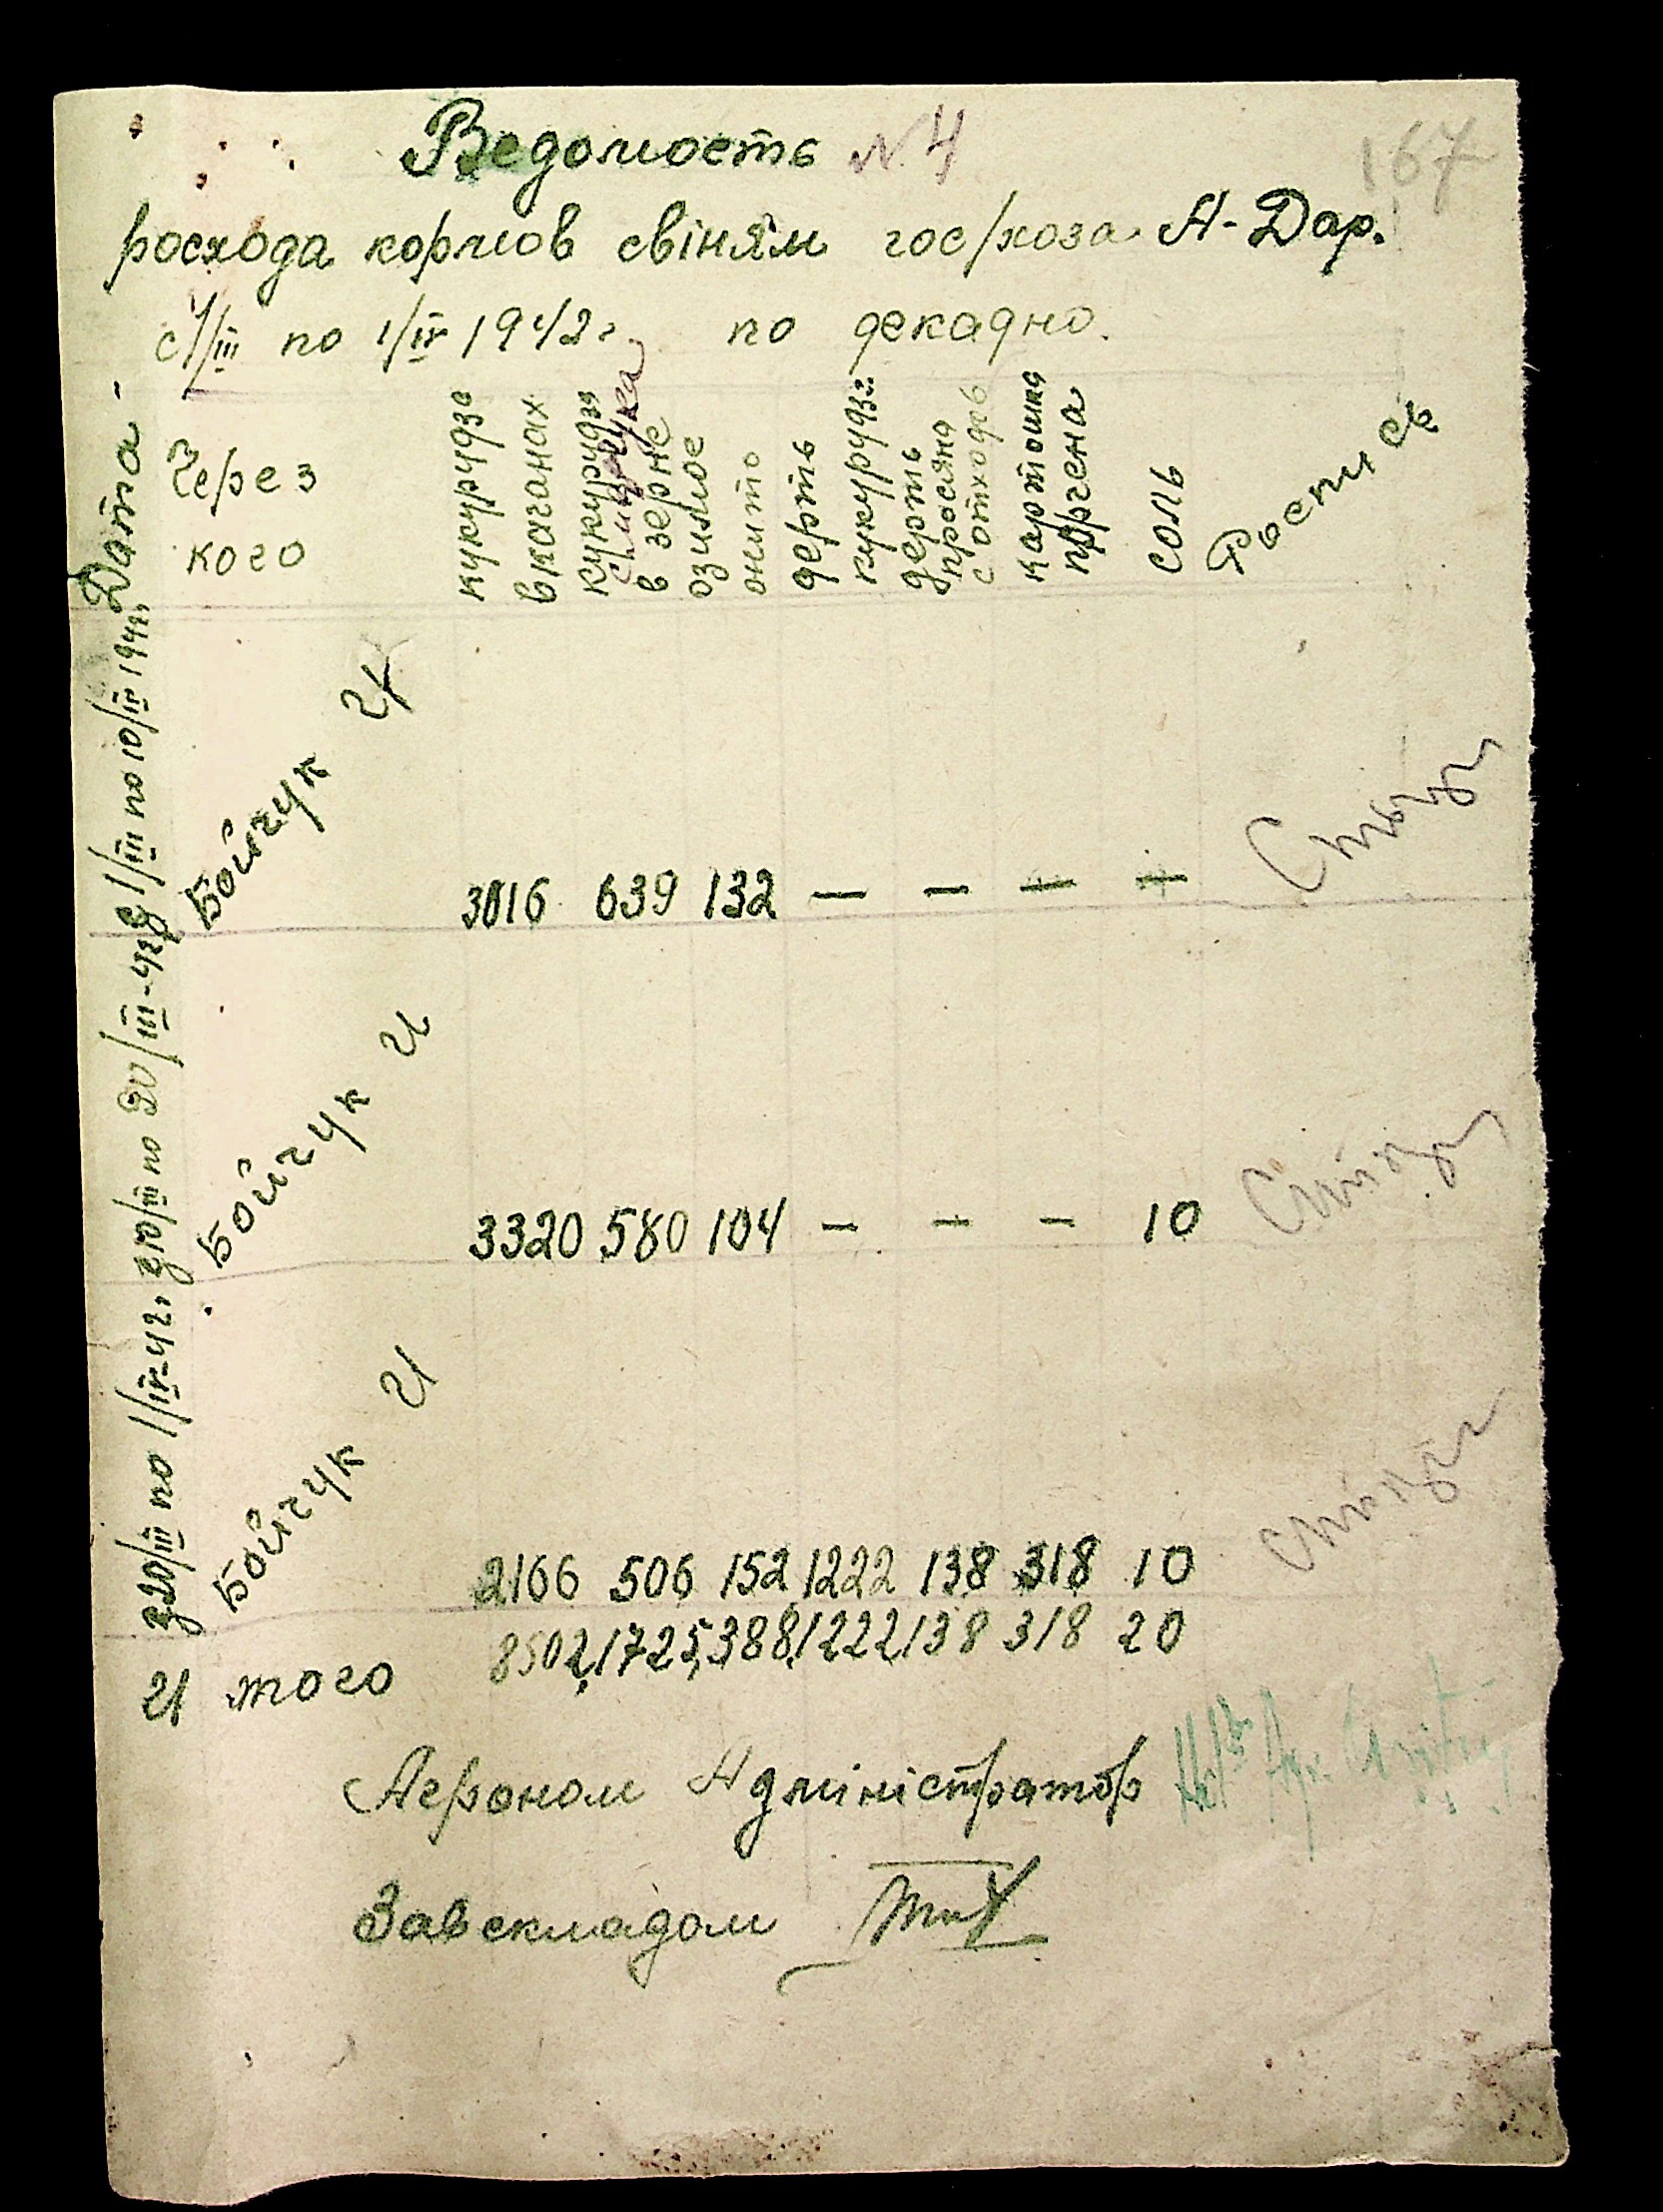 167
Ведомость N 4
росхода кормов свіням гос/хоза А-Дар.
с 1/III по 1/IV 1942 г. по декадно.
Дата
Через кого
кукурудза в качанах
кукурудзя в зерне
озимое жито
дерть кукурудз.
дерть просяна с отходов
картошка морчена
соль
Роспись
з 1/III по 10/III 1942,
Бойчук И
3016 639 132 — — — —
з 10/III по 20/III-42г
Бойчук И
3320 580 104 — — — 10
з 20/III по 1/IV-42г,
Бойчук И
2166 506 152 1222 138 318 10
И того 8502, 1725, 388, 1222, 138 318 20
Аероном Адміністратор
Завскладом